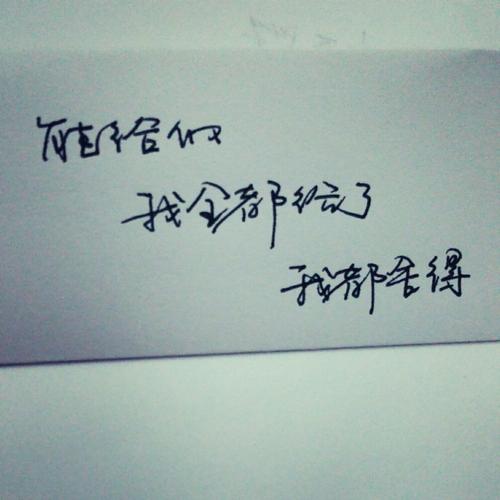 能给你
我全都给了
我都舍得